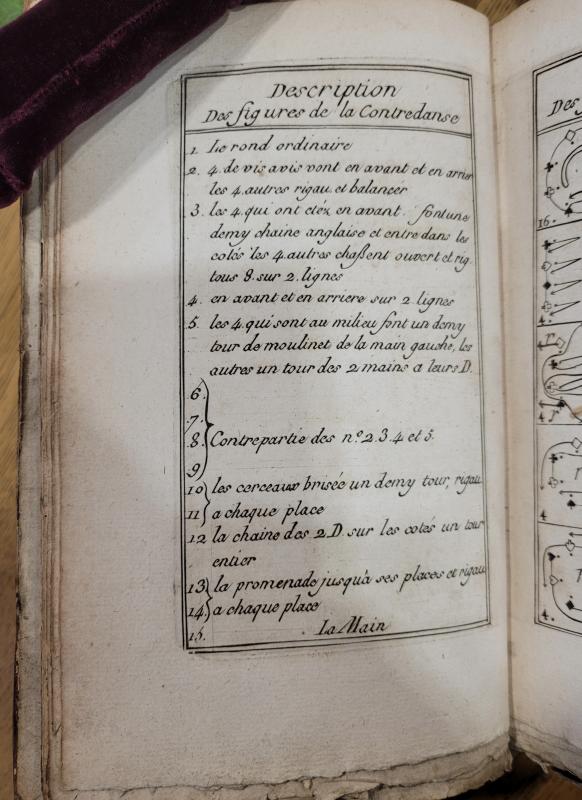 Description
Des figures de la Contredanse
1. Le rond ordinaire
2. 4. de vis avis vont en avant et en arrier
les 4. autres rigau. et balancer
3. les 4. qui ont etéz en avant. font une
demy chaine anglaise et entre dans les
cotés les 4. autres chassent ouvert et rig.
tous 8. sur 2. lignes
4. en avant et en arriere sur 2. lignes
5. les 4. qui sont au milieu font un demy
tour de moulinet de la main gauche, les
autres un tour des 2 mains a leurs D.
6.
7.
8. Contrepartie des n.º 2. 3. 4 et 5.
9
10 les cerceaux brisée un demy tour, rigau
11 a chaque place
12 la chaine des 2 D. sur les cotés un tour
entier
13 la promenade jusqu'a ses places et rigau
14. a chaque place
15. La Main
Des
16.
4
4
4